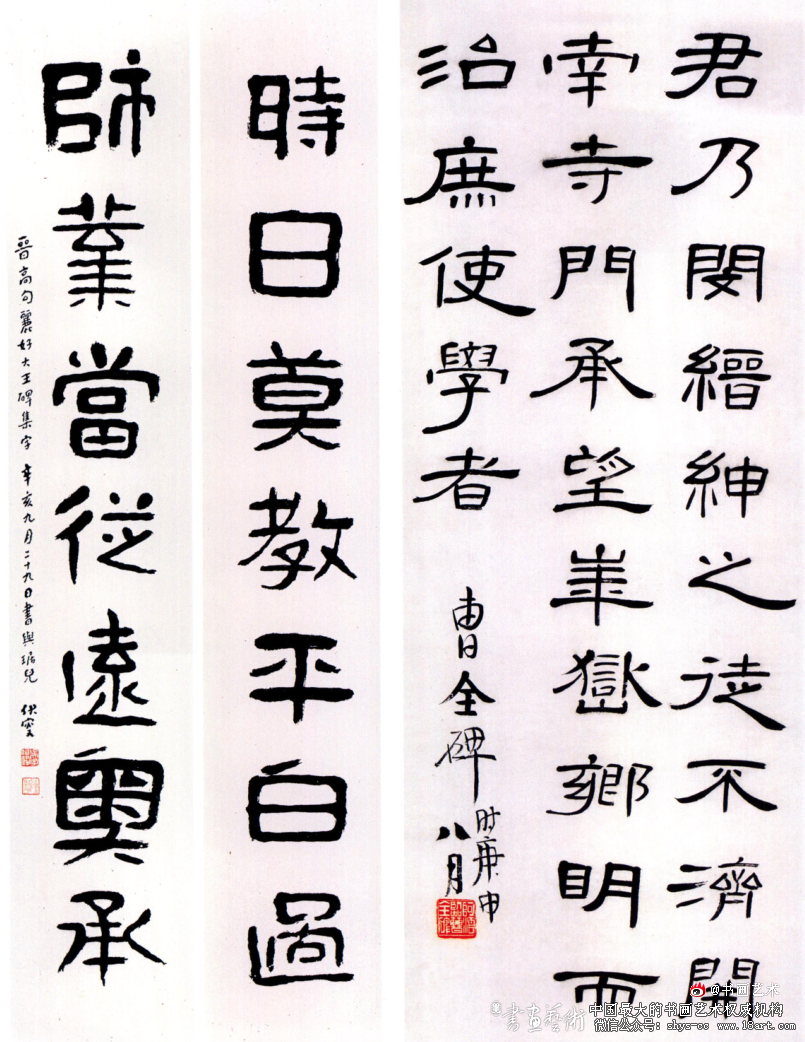 君乃閔縉紳之徒不濟開
南寺門承望崋嶽鄉明而
治庶使學者
曹全碑
时庚申
八月
時日莫教平白過
師業當從遠奧承
晉高句麗好大王碑集字 辛亥九月二十九日書與琚兒
@书画艺术
書畫藝術
中国最大的书画艺术权威机构
微信公众号：shys-cc www.18art.com